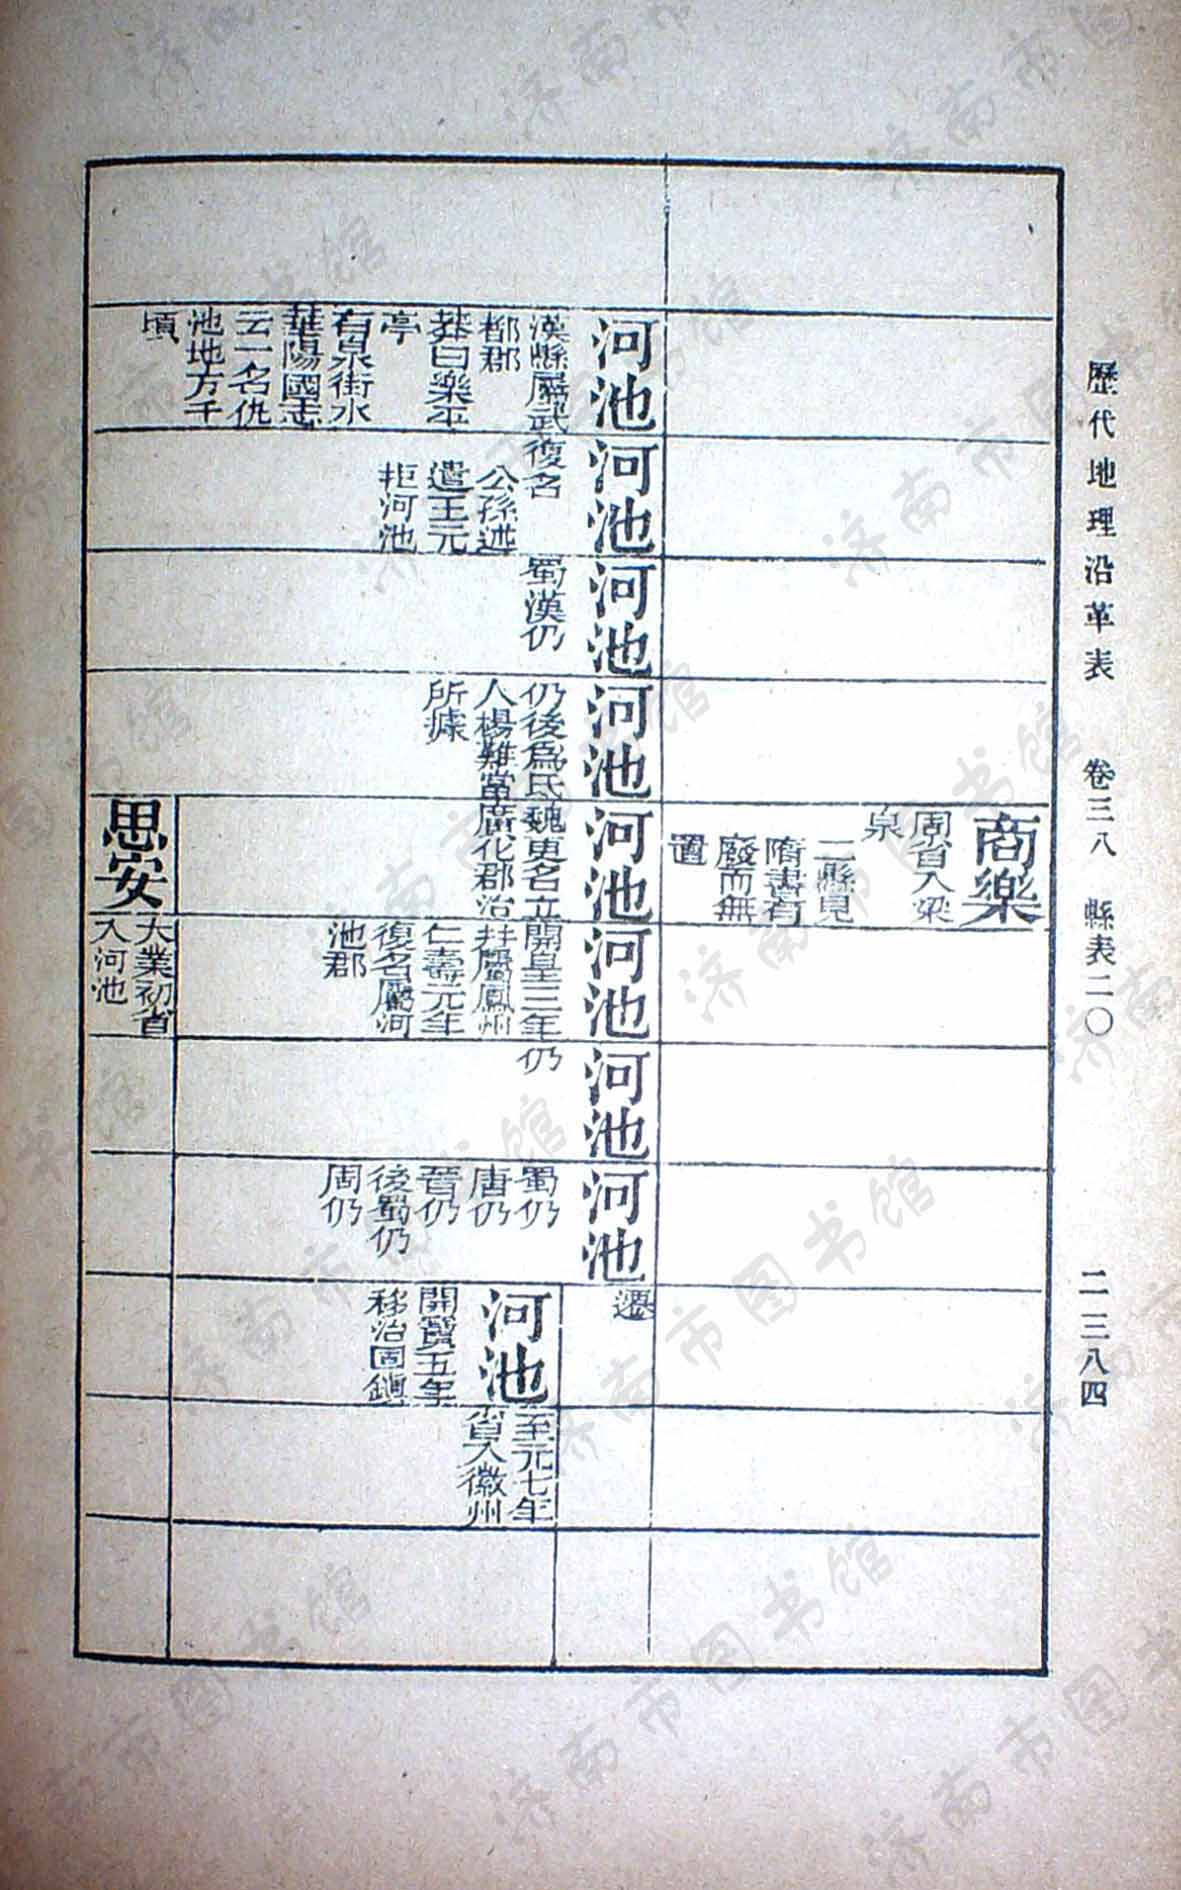 歷代地理沿革表　卷三八　縣表二〇　二三八四
商樂
周省入梁
泉
二縣見
隋書有
廢而無
置
河池
漢縣屬武
都郡
莽曰樂平
亭
有泉街水
華陽國志
云一名仇
池地方千
頃
河池
復名
公孫述
遣王元
拒河池
河池
蜀漢仍
河池
仍後爲氐
人楊難當
所據
河池
魏更名立
廣化郡治
河池
開皇三年
并屬鳳州
仁壽元年
復名屬河
池郡
河池
仍
河池
蜀仍
唐仍
晉仍
後蜀仍
周仍
遷
河池
開寶五年
移治固鎮
至元七年
省入徽州
思安
大業初省
入河池
济南市图书馆